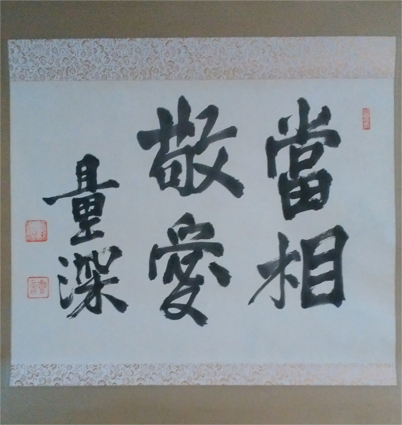 當相
敬愛
量深